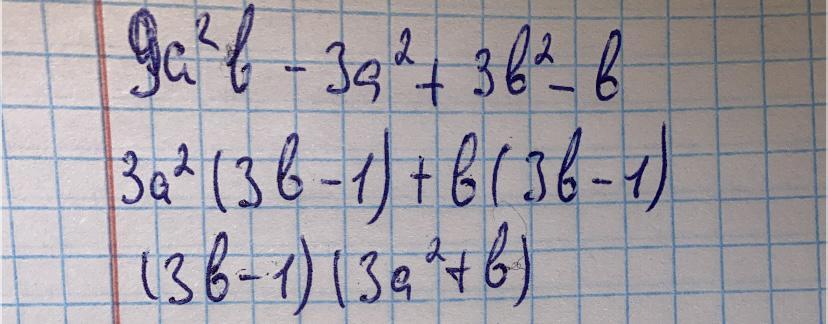 9a²b - 3a² + 3b² - b
3a²(3b - 1) + b(3b - 1)
(3b - 1)(3a² + b)